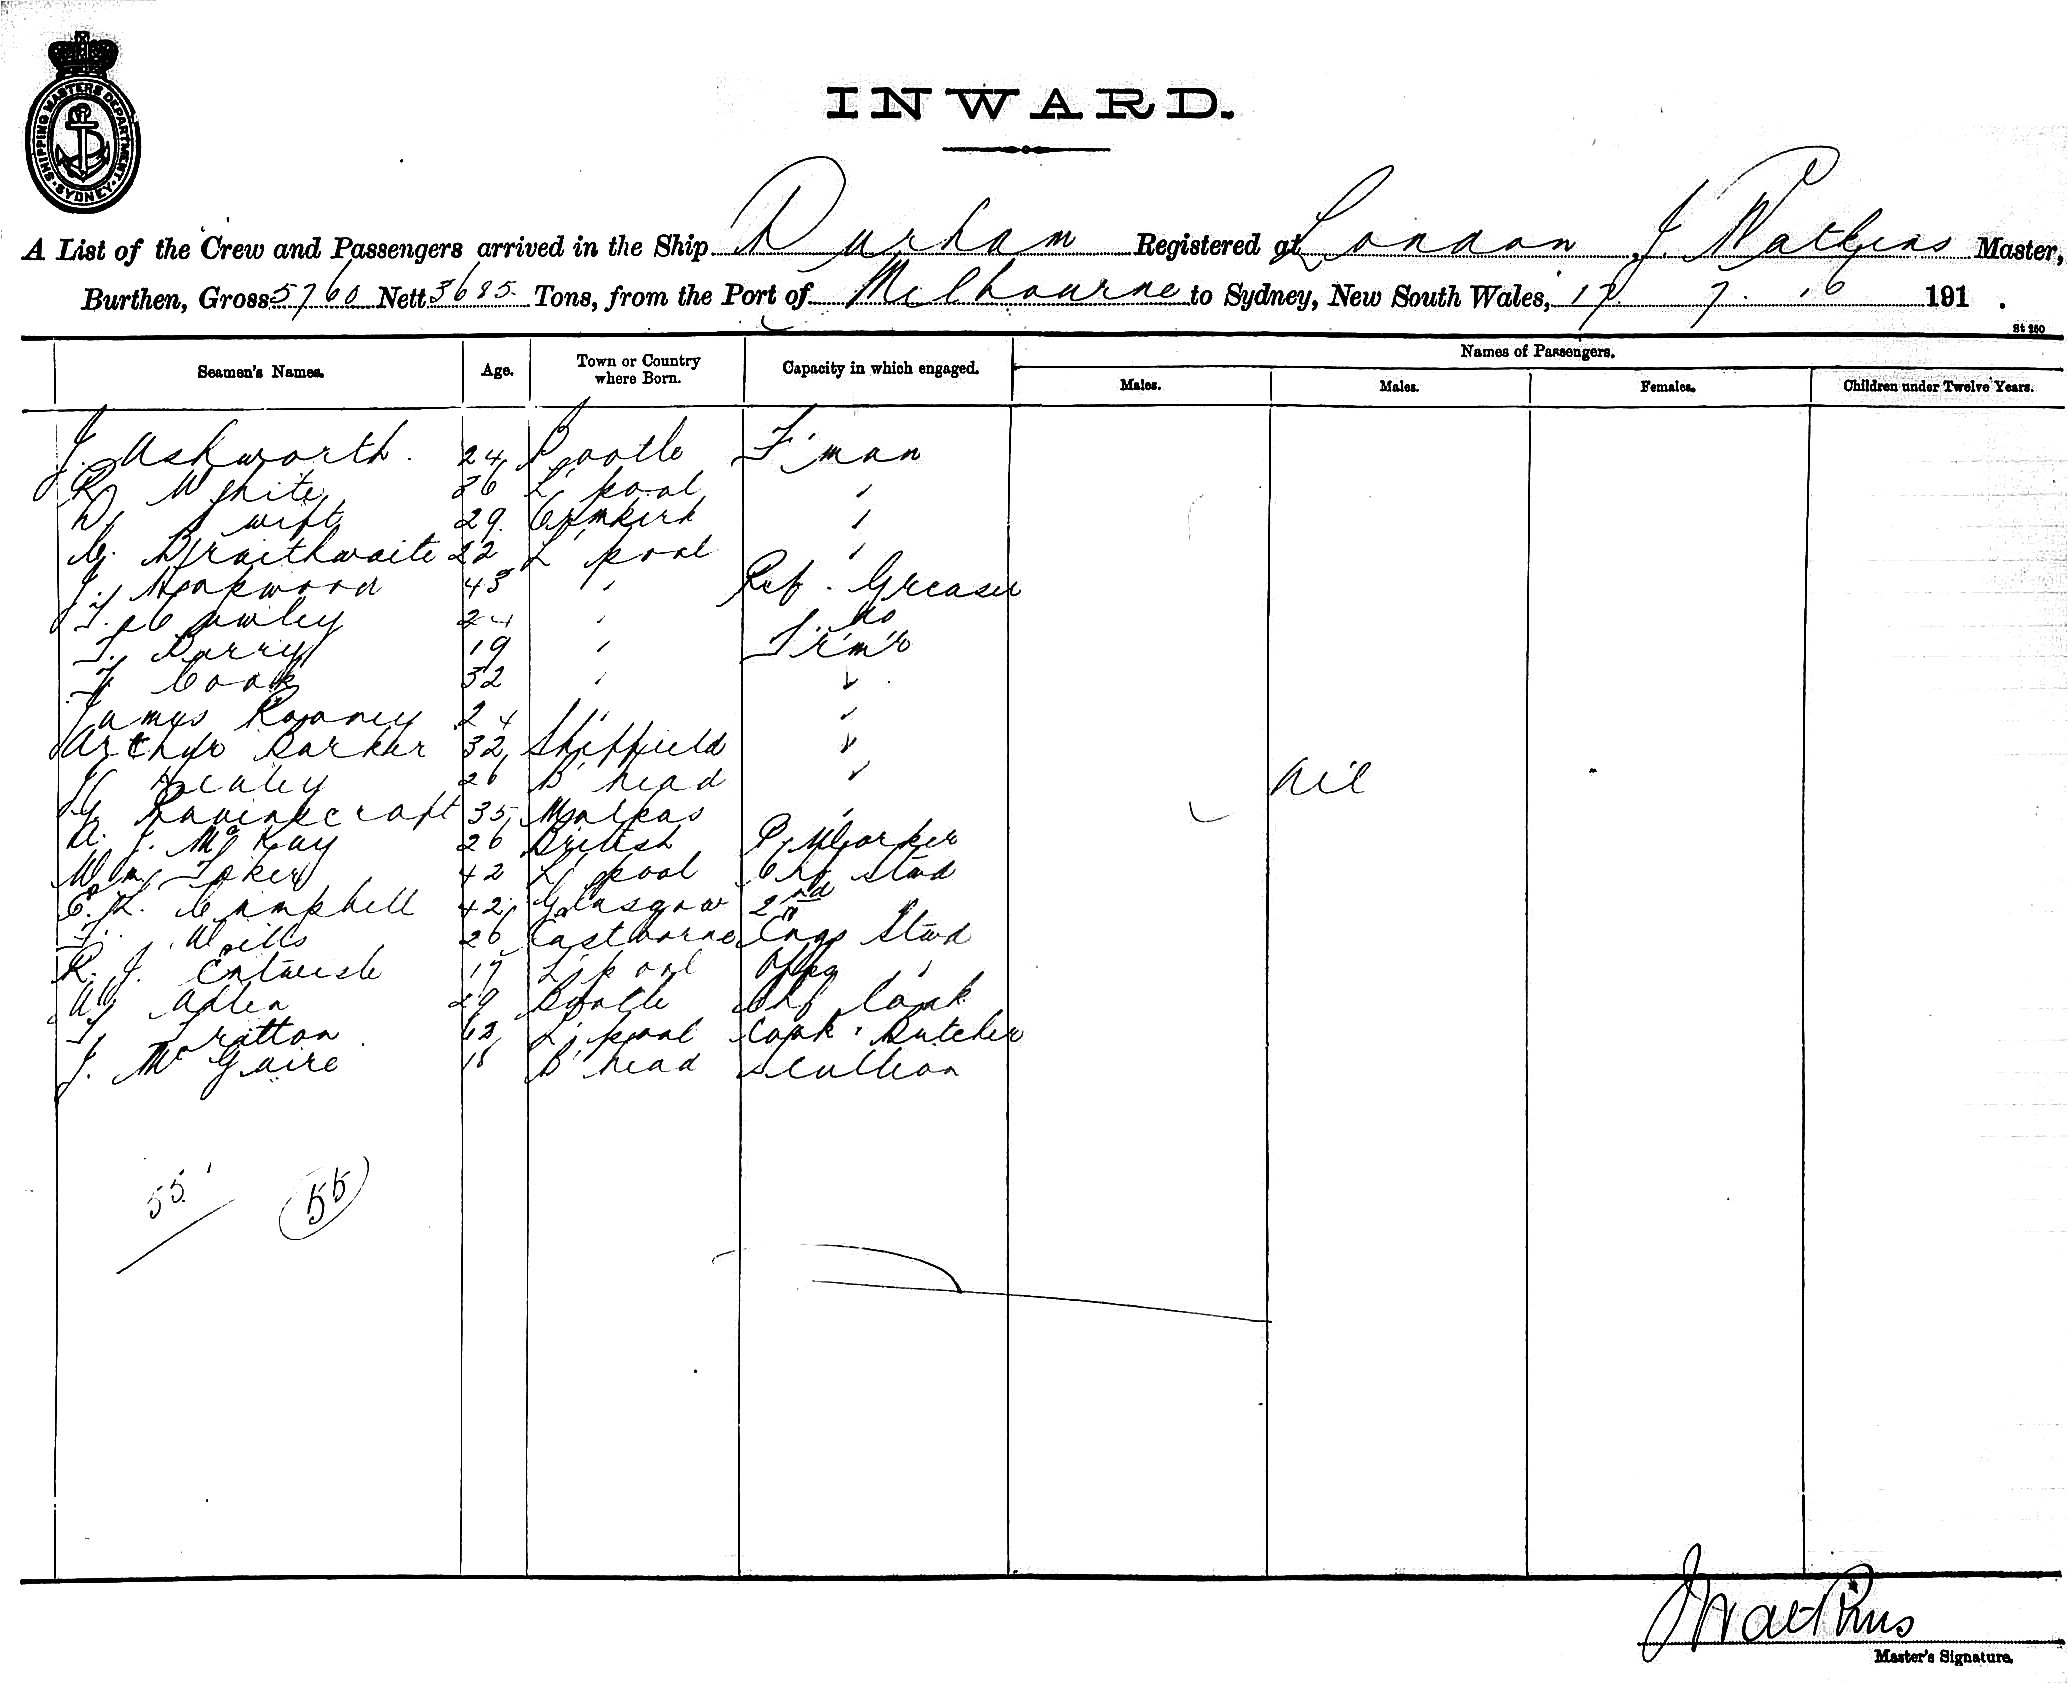 SHIPPING MASTERS DEPARTMENT
SYDNEY
INWARD.
A List of the Crew and Passengers arrived in the Ship Durham Registered at London J. Watkins Master,
Burthen, Gross 5760 Nett 3685 Tons, from the Port of Melbourne to Sydney, New South Wales, 17 7. 16 191 .
St 280
Names of Passengers.
Seamen's Names. Age. Town or Country where Born. Capacity in which engaged. Males. Males. Females. Children under Twelve Years.
J. Ashworth. 24 Bootle F'man
R White 36 L'pool "
D Swift 29 Ormskirk "
C. Braithwaite 22 L'pool "
J. Hopwood 43 " Ref. Greaser
T. Cawley 24 " do
T. Barry 19 " Trm'r
F Cook 32 " "
James Rooney 24 " "
Arthur Barker 32 Sheffield "
Healey 26 B'head "
Ravenscroft 35 Malpas "
A. J. McKay 26 British P. Worker
Wm Toker 42 L'pool Chf Stwd
C. L. Campbell 42 Glasgow 2nd "
F. Wills 26 Eastborne Engs Stwd
R. J. Entwisle 17 L'pool "
W Allen 29 Bootle Chf Cook
T Tritton L'pool Cook & Butcher
J. McGaire 18 B'head Scullion
Nil
55 55
J Watkins
Master's Signature.